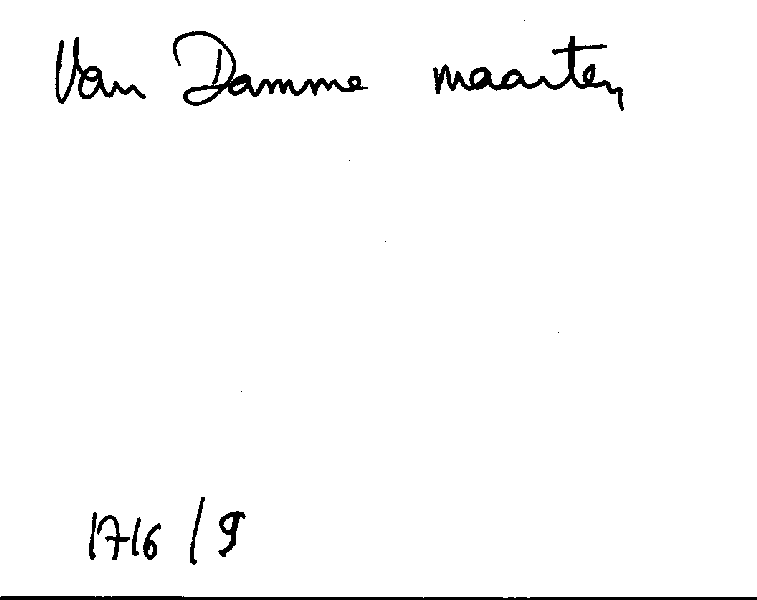 Van Damme maarten
1716 / 9